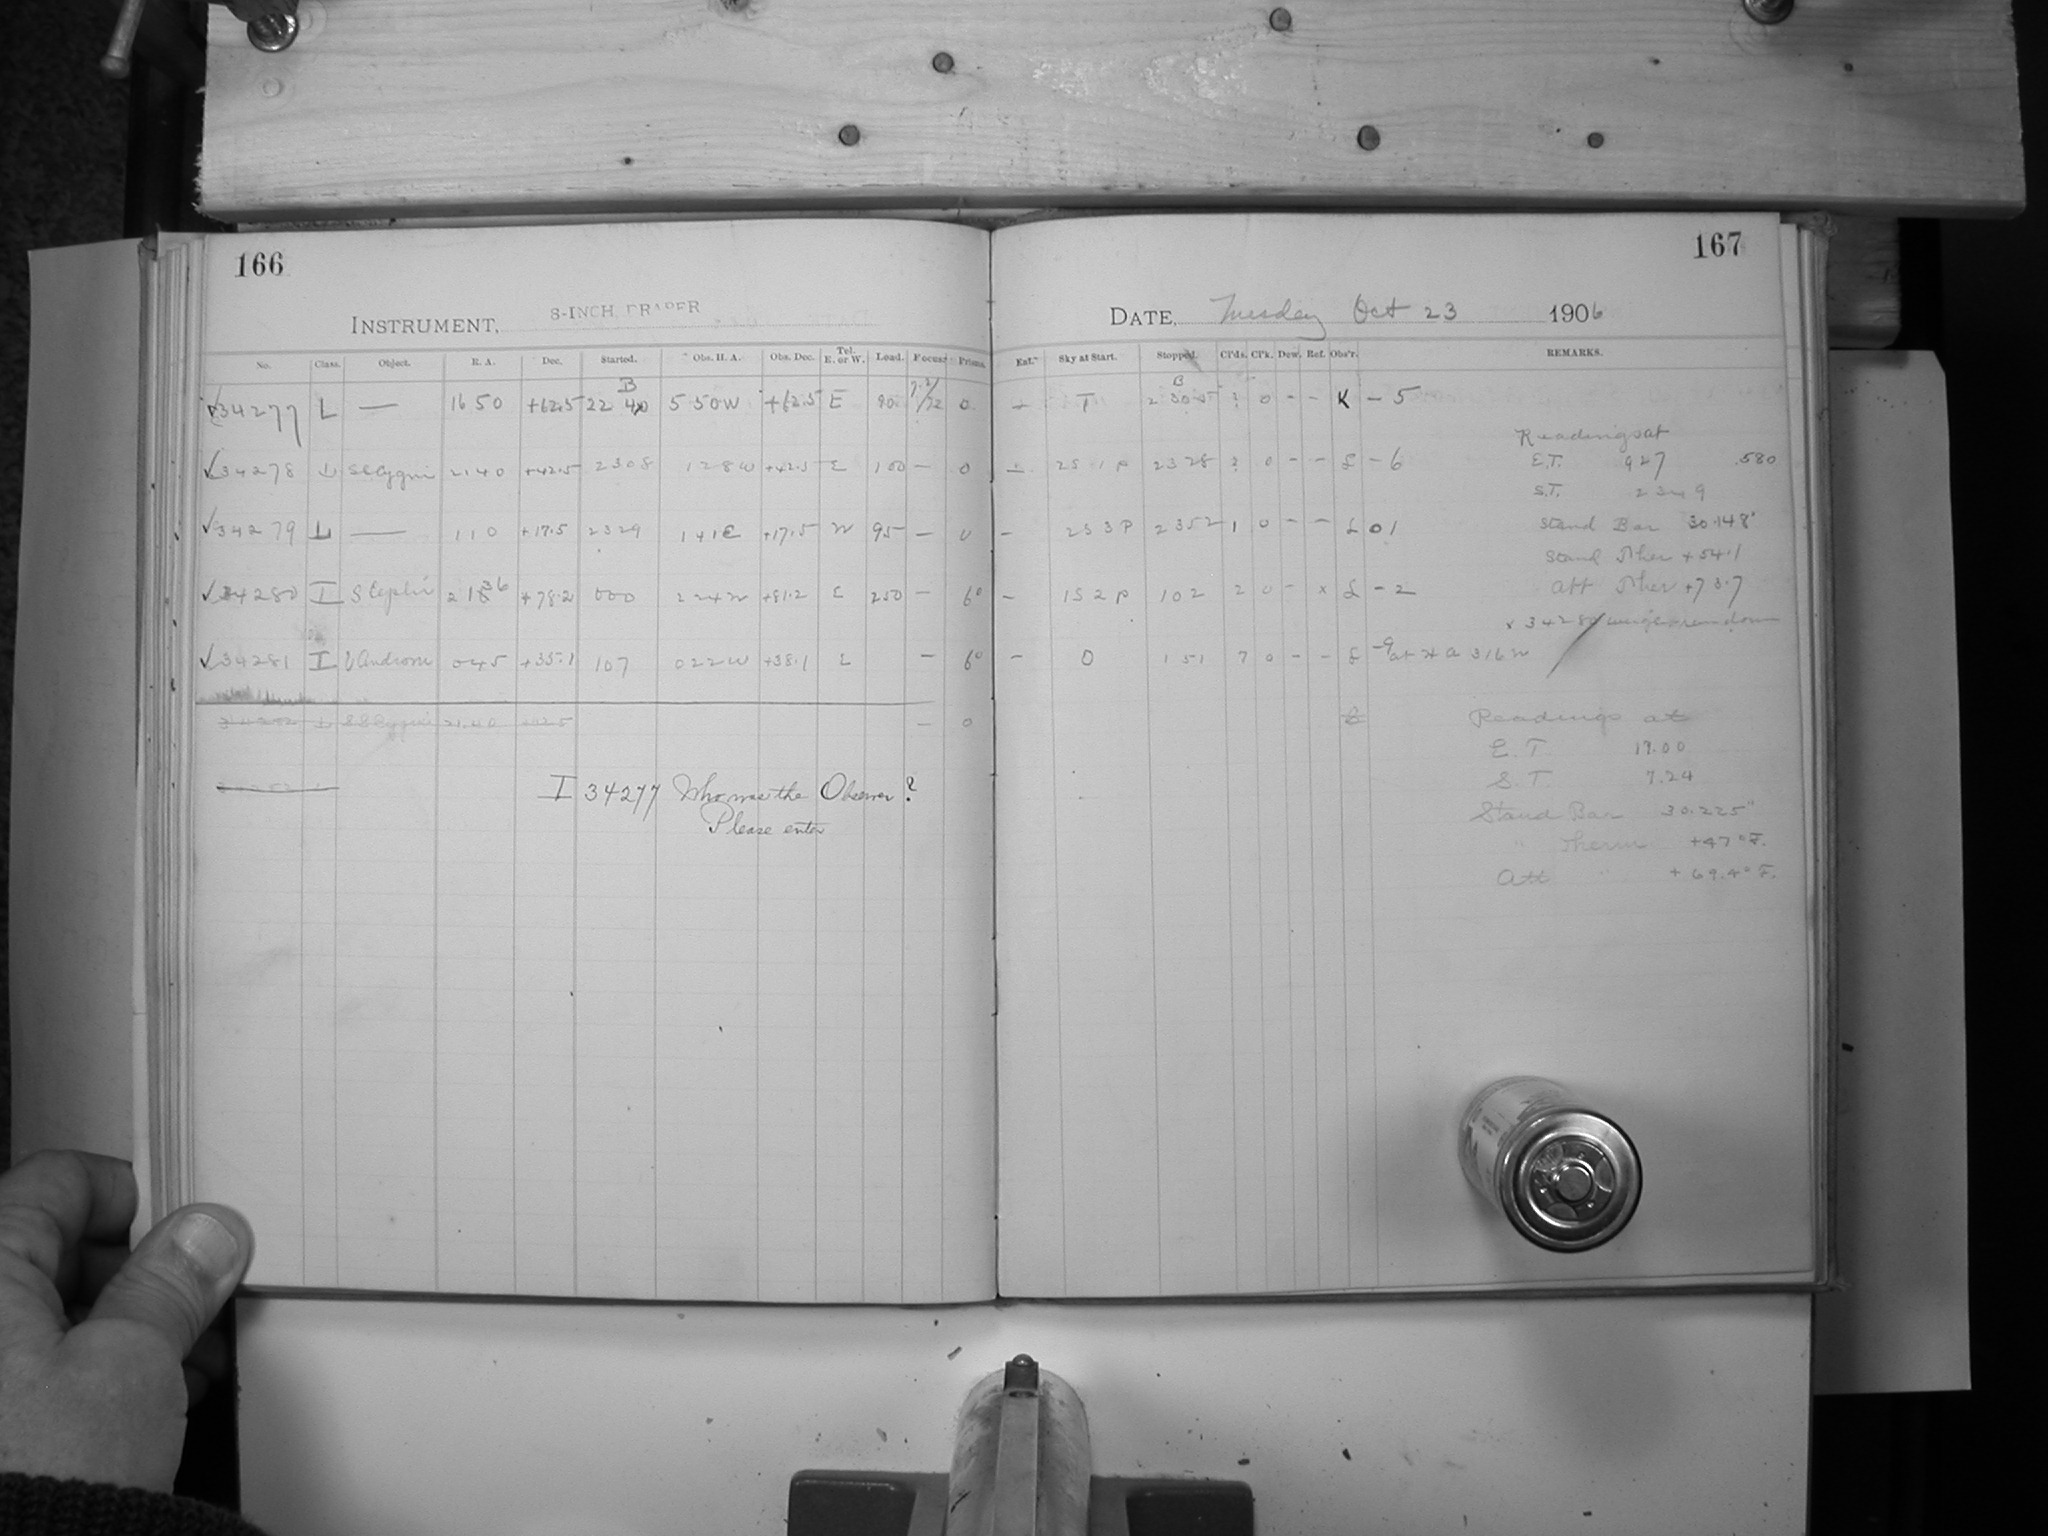 166
INSTRUMENT, 8-INCH DRAPER
No. Class. Object. R. A. Dec. Started. Obs. H. A. Obs. Dec. Tel. E. or W. Load. Focus. Prisms.
B
34277 L — 16 50 +62.5 22 40 5 50 W +62.5 E 90 0
34278 L SS Cygni 21 40 +42.5 23 08 1 28 W +42.5 E 100 — 0
34279 L — 1 10 +17.5 23 29 1 41 E +17.5 W 95 — 0
34280 I S Cephei 21 36 +78.2 0 00 2 24 W +81.2 E 250 — 6°
34281 I 0 45 +35.1 1 07 0 22 W +38.1 E — 6°
SS Cygni 21.40 +42.5 — 0
I 34277 Who was the Observer?
Please enter
167
DATE, Tuesday Oct 23 1906
Ext. Sky at Start. Stopped. Cl'ds. Cl'k. Dew. Ref. Obs'r. REMARKS.
B
T ? 0 - - K - 5
Readings at
2S 1 P 23 28 ? 0 - - L - 6 E.T. 9 27 .580
S.T.
- 2S 3 P 23 52 1 0 - - L 0 1 Stand Bar 30.148"
Stand Ther +54.1
- 1S 2 P 1 02 2 0 - x L - 2 Att Ther +73.7
x 34280
- 0 1 51 7 0 - - L -9 at H A 3 16 W
Readings at
E. T. 17.00
S. T. 7.24
Stand Bar 30.225"
" Therm +47°F.
Att " +69.4°F.